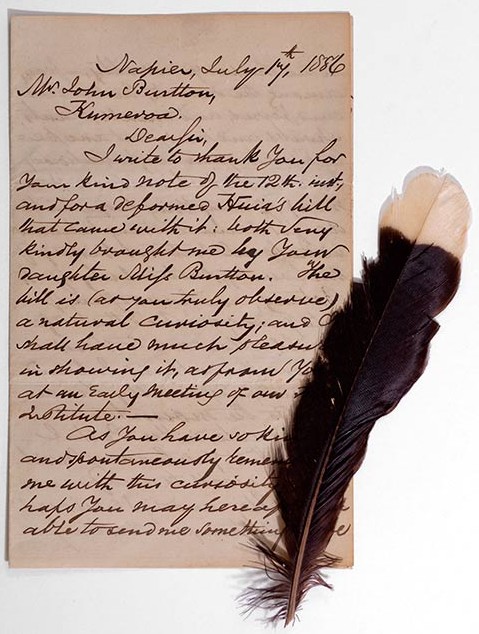 Napier, July 17th, 1886
Mr. John Burtton,
Kumeroa.
Dear Sir,
I write to thank You for
Your kind note of the 12th. inst,
and for a deformed Huia's bill
that came with it: both very
kindly brought me by Your
daughter Miss Burtton. The
bill is (as you truly observe)
a natural curiosity; and I
shall have much pleasu
in showing it, as from Yo
at an Early Meeting of our
Institute. —
As You have so ki
and spontaneously remem
me with this curiosity
haps You may herea
able to send me somethin